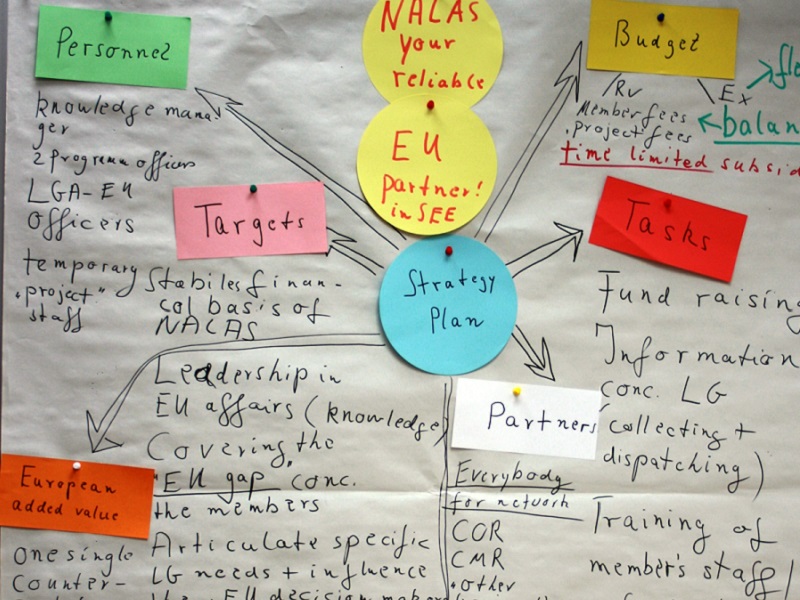 NALAS
your
reliable
EU
partner!
in SEE
Strategy
Plan
Personnel
knowledge mana-
ger
2 programm officers
LGA-EU
officers
temporary
"project"
staff
Targets
Stabiles finan-
cal basis of
NALAS
Leadership in
EU affairs (knowledge)
Covering the
"EU gap" conc.
the members
Articulate specific
LG needs + influence
the EU decision makers
European
added value
One single
counter-
Budget
Rv
Ex
Member fees
project fees
balan
time limited subsid
Tasks
Fund raising
Information
conc. LG
(collecting +
dispatching)
Training of
member's staff
Partners
Everybody
for network
COR
CMR
other